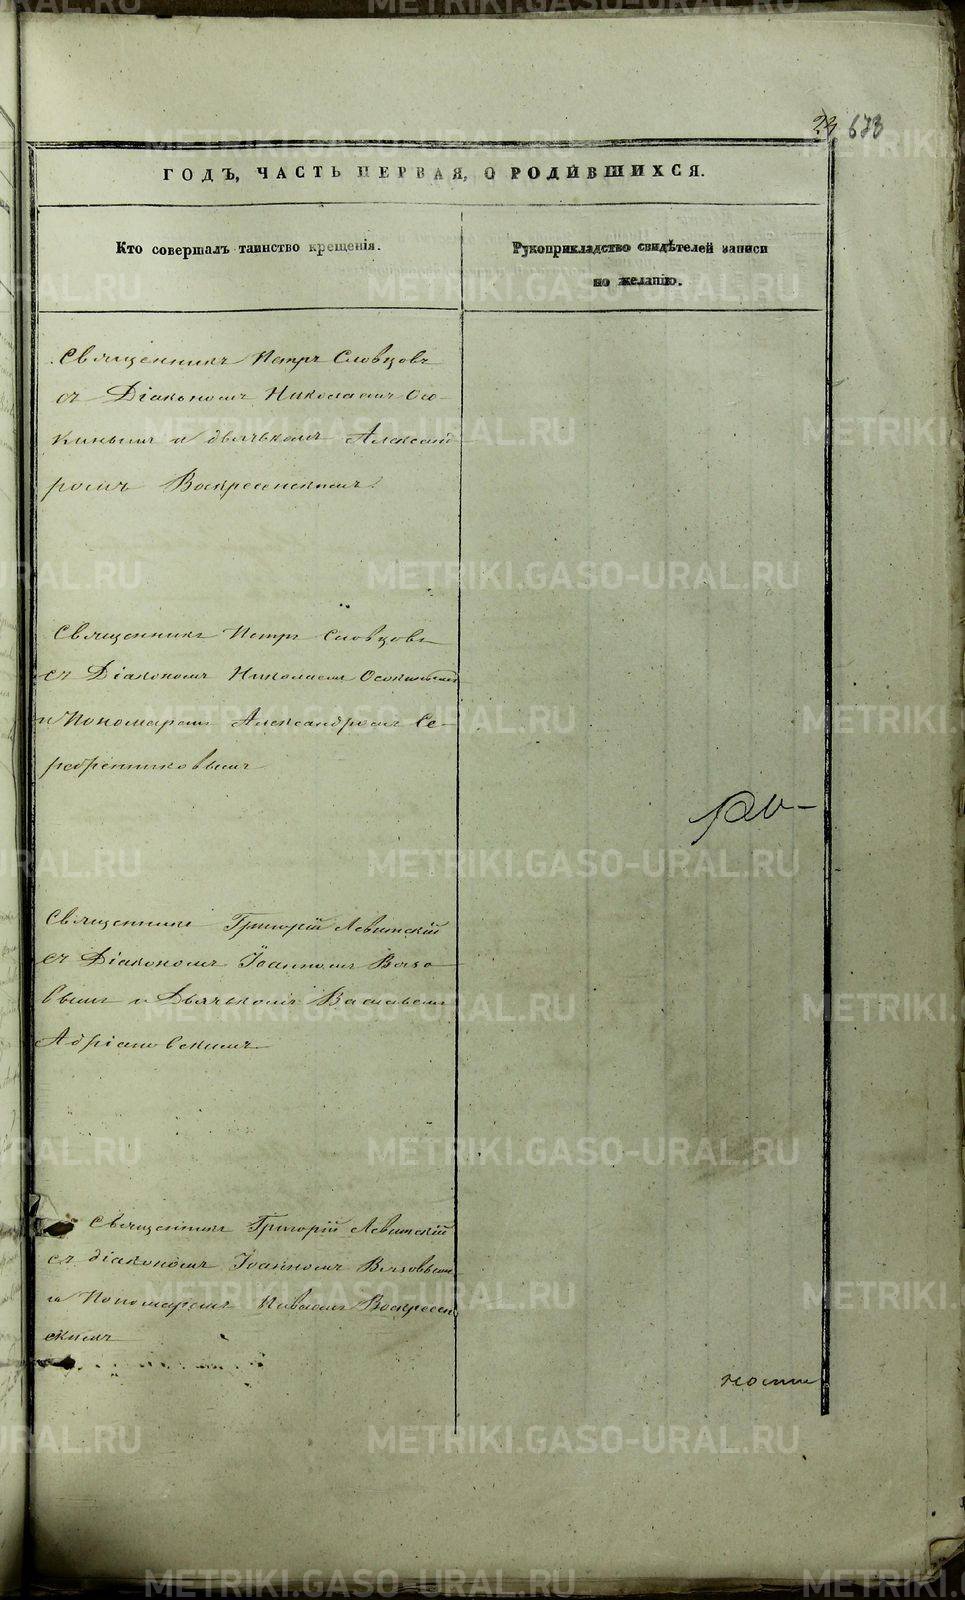 23 673
ГОДЪ, ЧАСТЬ ПЕРВАЯ, О РОДИВШИХСЯ.
Кто совершалъ таинство крещенія.
Рукоприкладство свидѣтелей записи
по желанію.
Священникъ Петръ Словцовъ
съ Діакономъ Николаемъ Осо-
кинымъ и дьячькомъ Александ
ромъ Воскресенскимъ
Священникъ Петръ Словцовъ
съ Діакономъ Николаемъ Осокинымъ
и Пономаремъ Александромъ Се-
ребренниковымъ
Священникъ Григорій Левитскій
съ Діакономъ Іоанномъ Вязо
вымъ и Дьячькомъ Васильемъ
Адріановскимъ
Священникъ Григорій Левитскій
съ діакономъ Іоанномъ Вязовымъ
и Пономаремъ Павломъ Воскресен
скимъ
METRIKI.GASO-URAL.RU